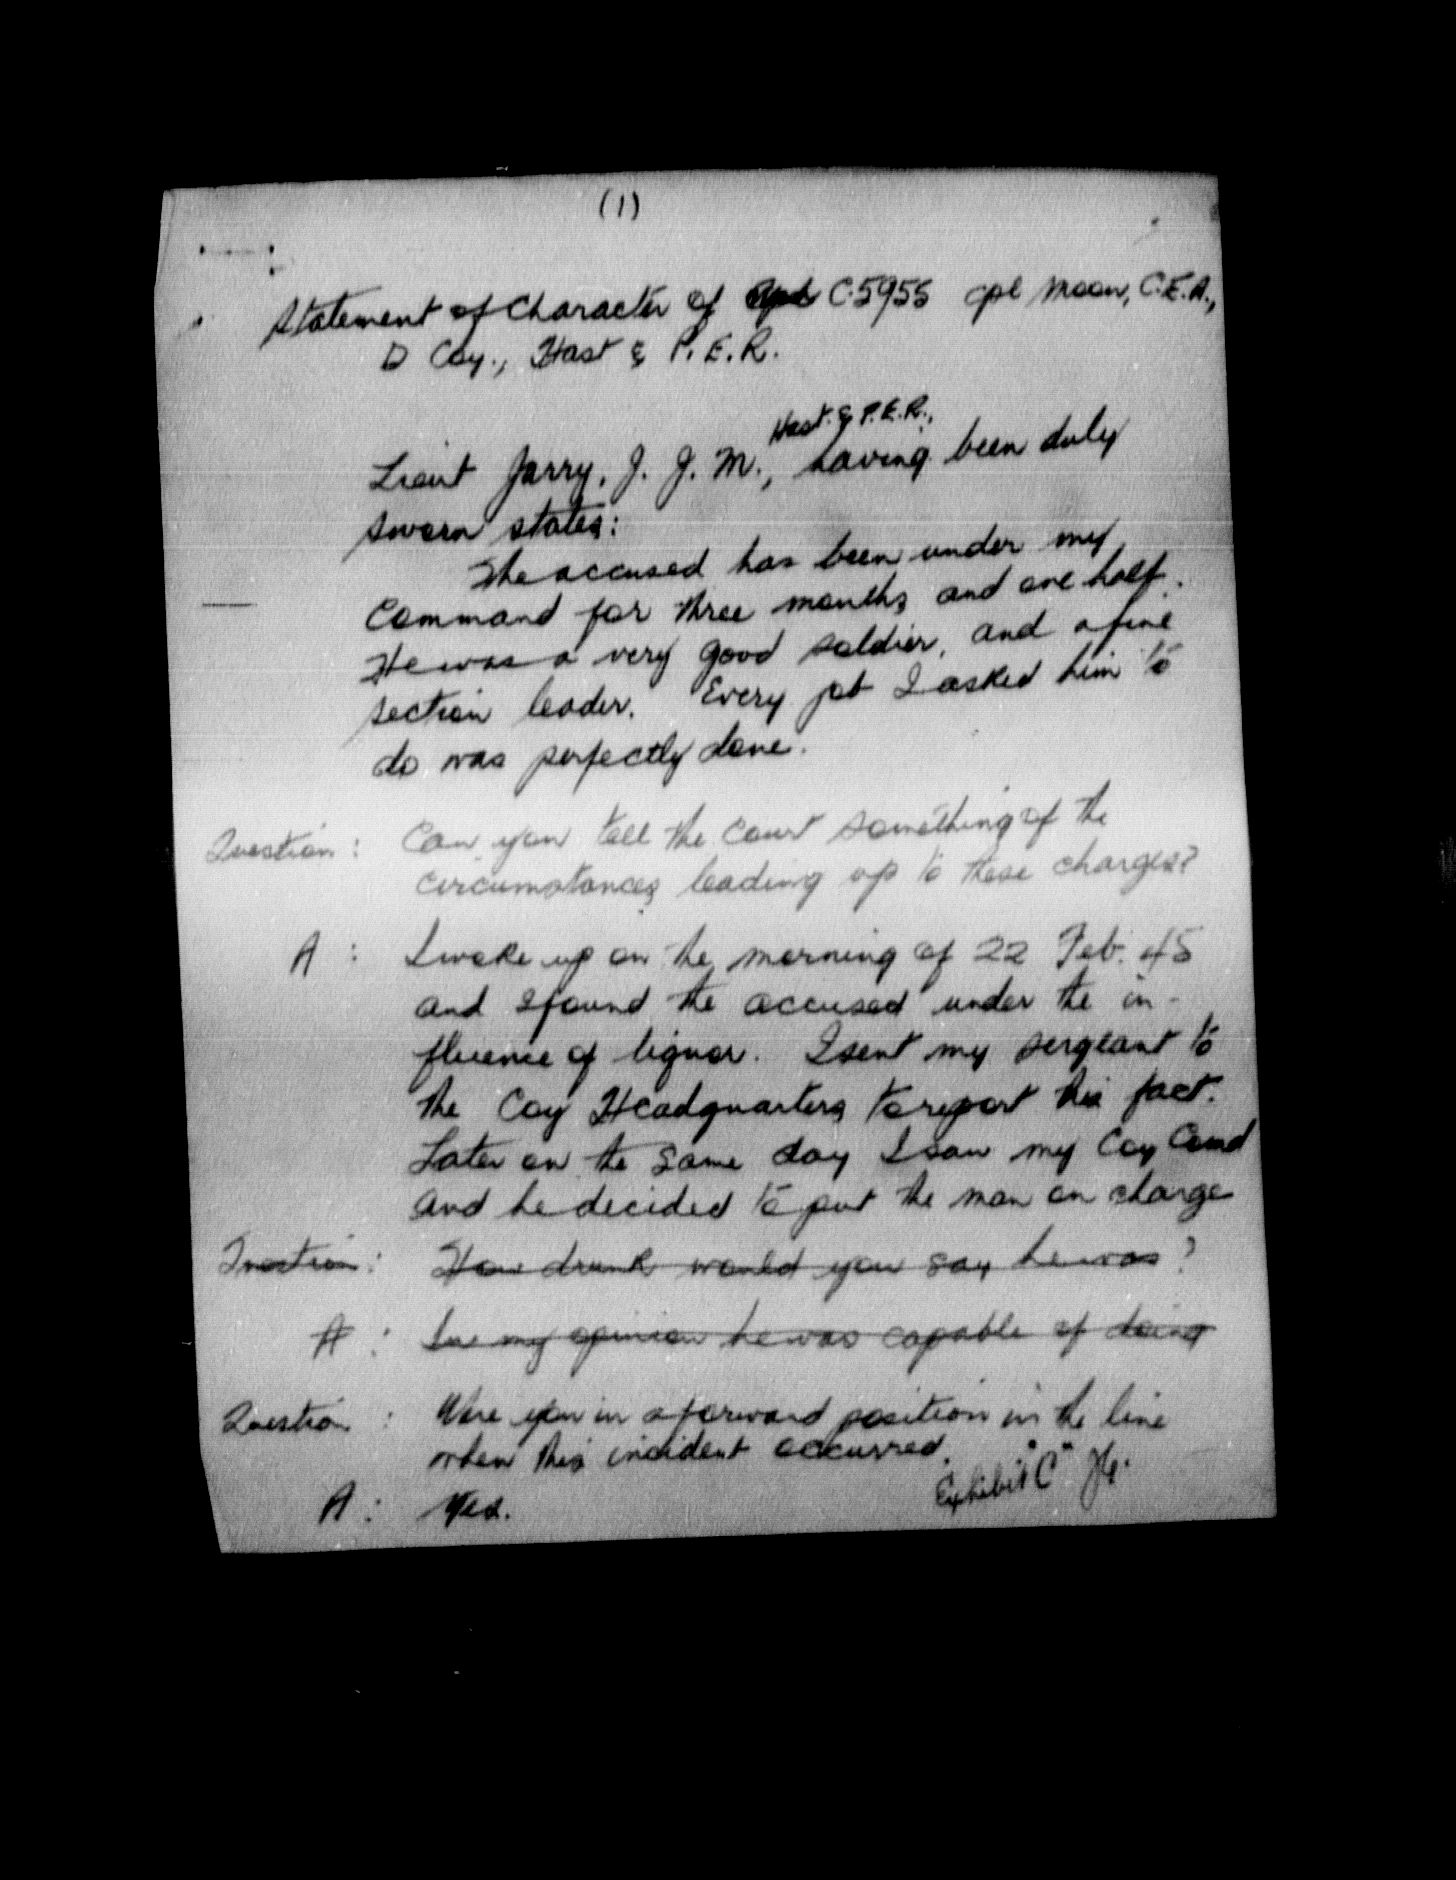 (1)
Statement of Character of C.5955 Cpl Moon, C.E.A.,
D Coy., Hast & P.E.R.
Hast. & P.E.R.,
Lieut Jarry, J. J. M., having been duly
sworn states:
The accused has been under my
Command for three months and one half.
He was a very good soldier, and a fine
section leader. Every job I asked him to
do was perfectly done.
Question: Can you tell the Court something of the
circumstances leading up to these charges?
A: I woke up on the morning of 22 Feb. 45
and I found the accused under the in-
fluence of liquor. I sent my sergeant to
the Coy Headquarters to report this fact.
Later on the same day I saw my Coy Comd
and he decided to put the man on charge
Question: How drunk would you say he was?
A: In my opinion he was capable of doing
Question: Were you in a forward position in the line
when this incident occurred.
A: Yes.
Exhibit "C"